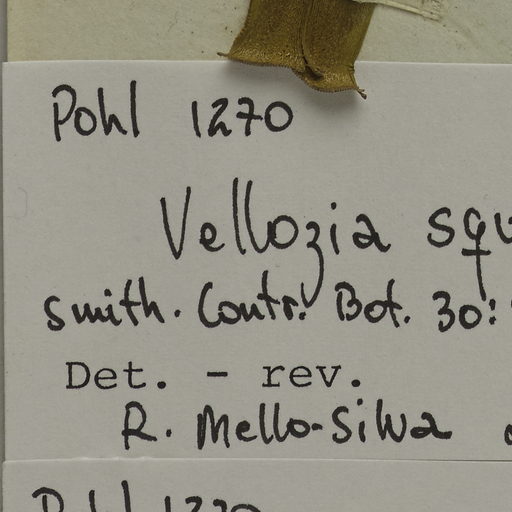 Pohl 1270
Vellozia squ
smith. Contr. Bot. 30:
Det. - rev.
R. Mello-Silva
Pohl 1270